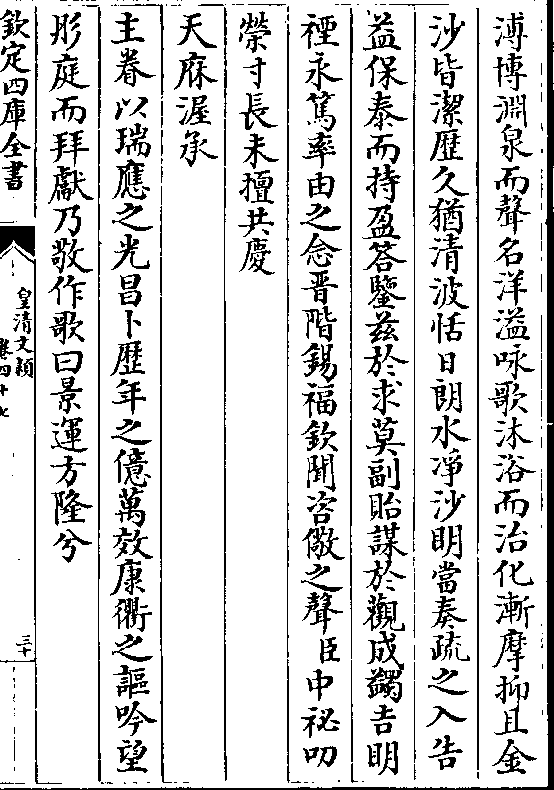 溥博淵泉而聲名洋溢咏歌沐浴而治化漸摩抑且金
沙皆潔歷久猶清波恬日朗水凈沙明當奏疏之入告
益保泰而持盈答鑒兹於求莫副貽謀於觀成蠲吉明
禋永篤率由之念晉階錫福欽聞咨儆之聲臣中祕叨
榮寸長未擅共慶
天庥渥承
主眷以瑞應之光昌卜歷年之億萬效康衢之謳吟望
彤庭而拜獻乃敬作歌曰景運方隆兮
欽定四庫全書
皇清文穎
卷四十七
三十